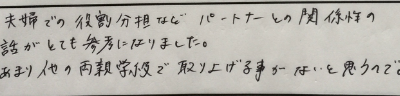 夫婦での役割分担など パートナーとの関係性の
話がとても参考になりました。
あまり他の両親学級で取り上げる事がないと思うので